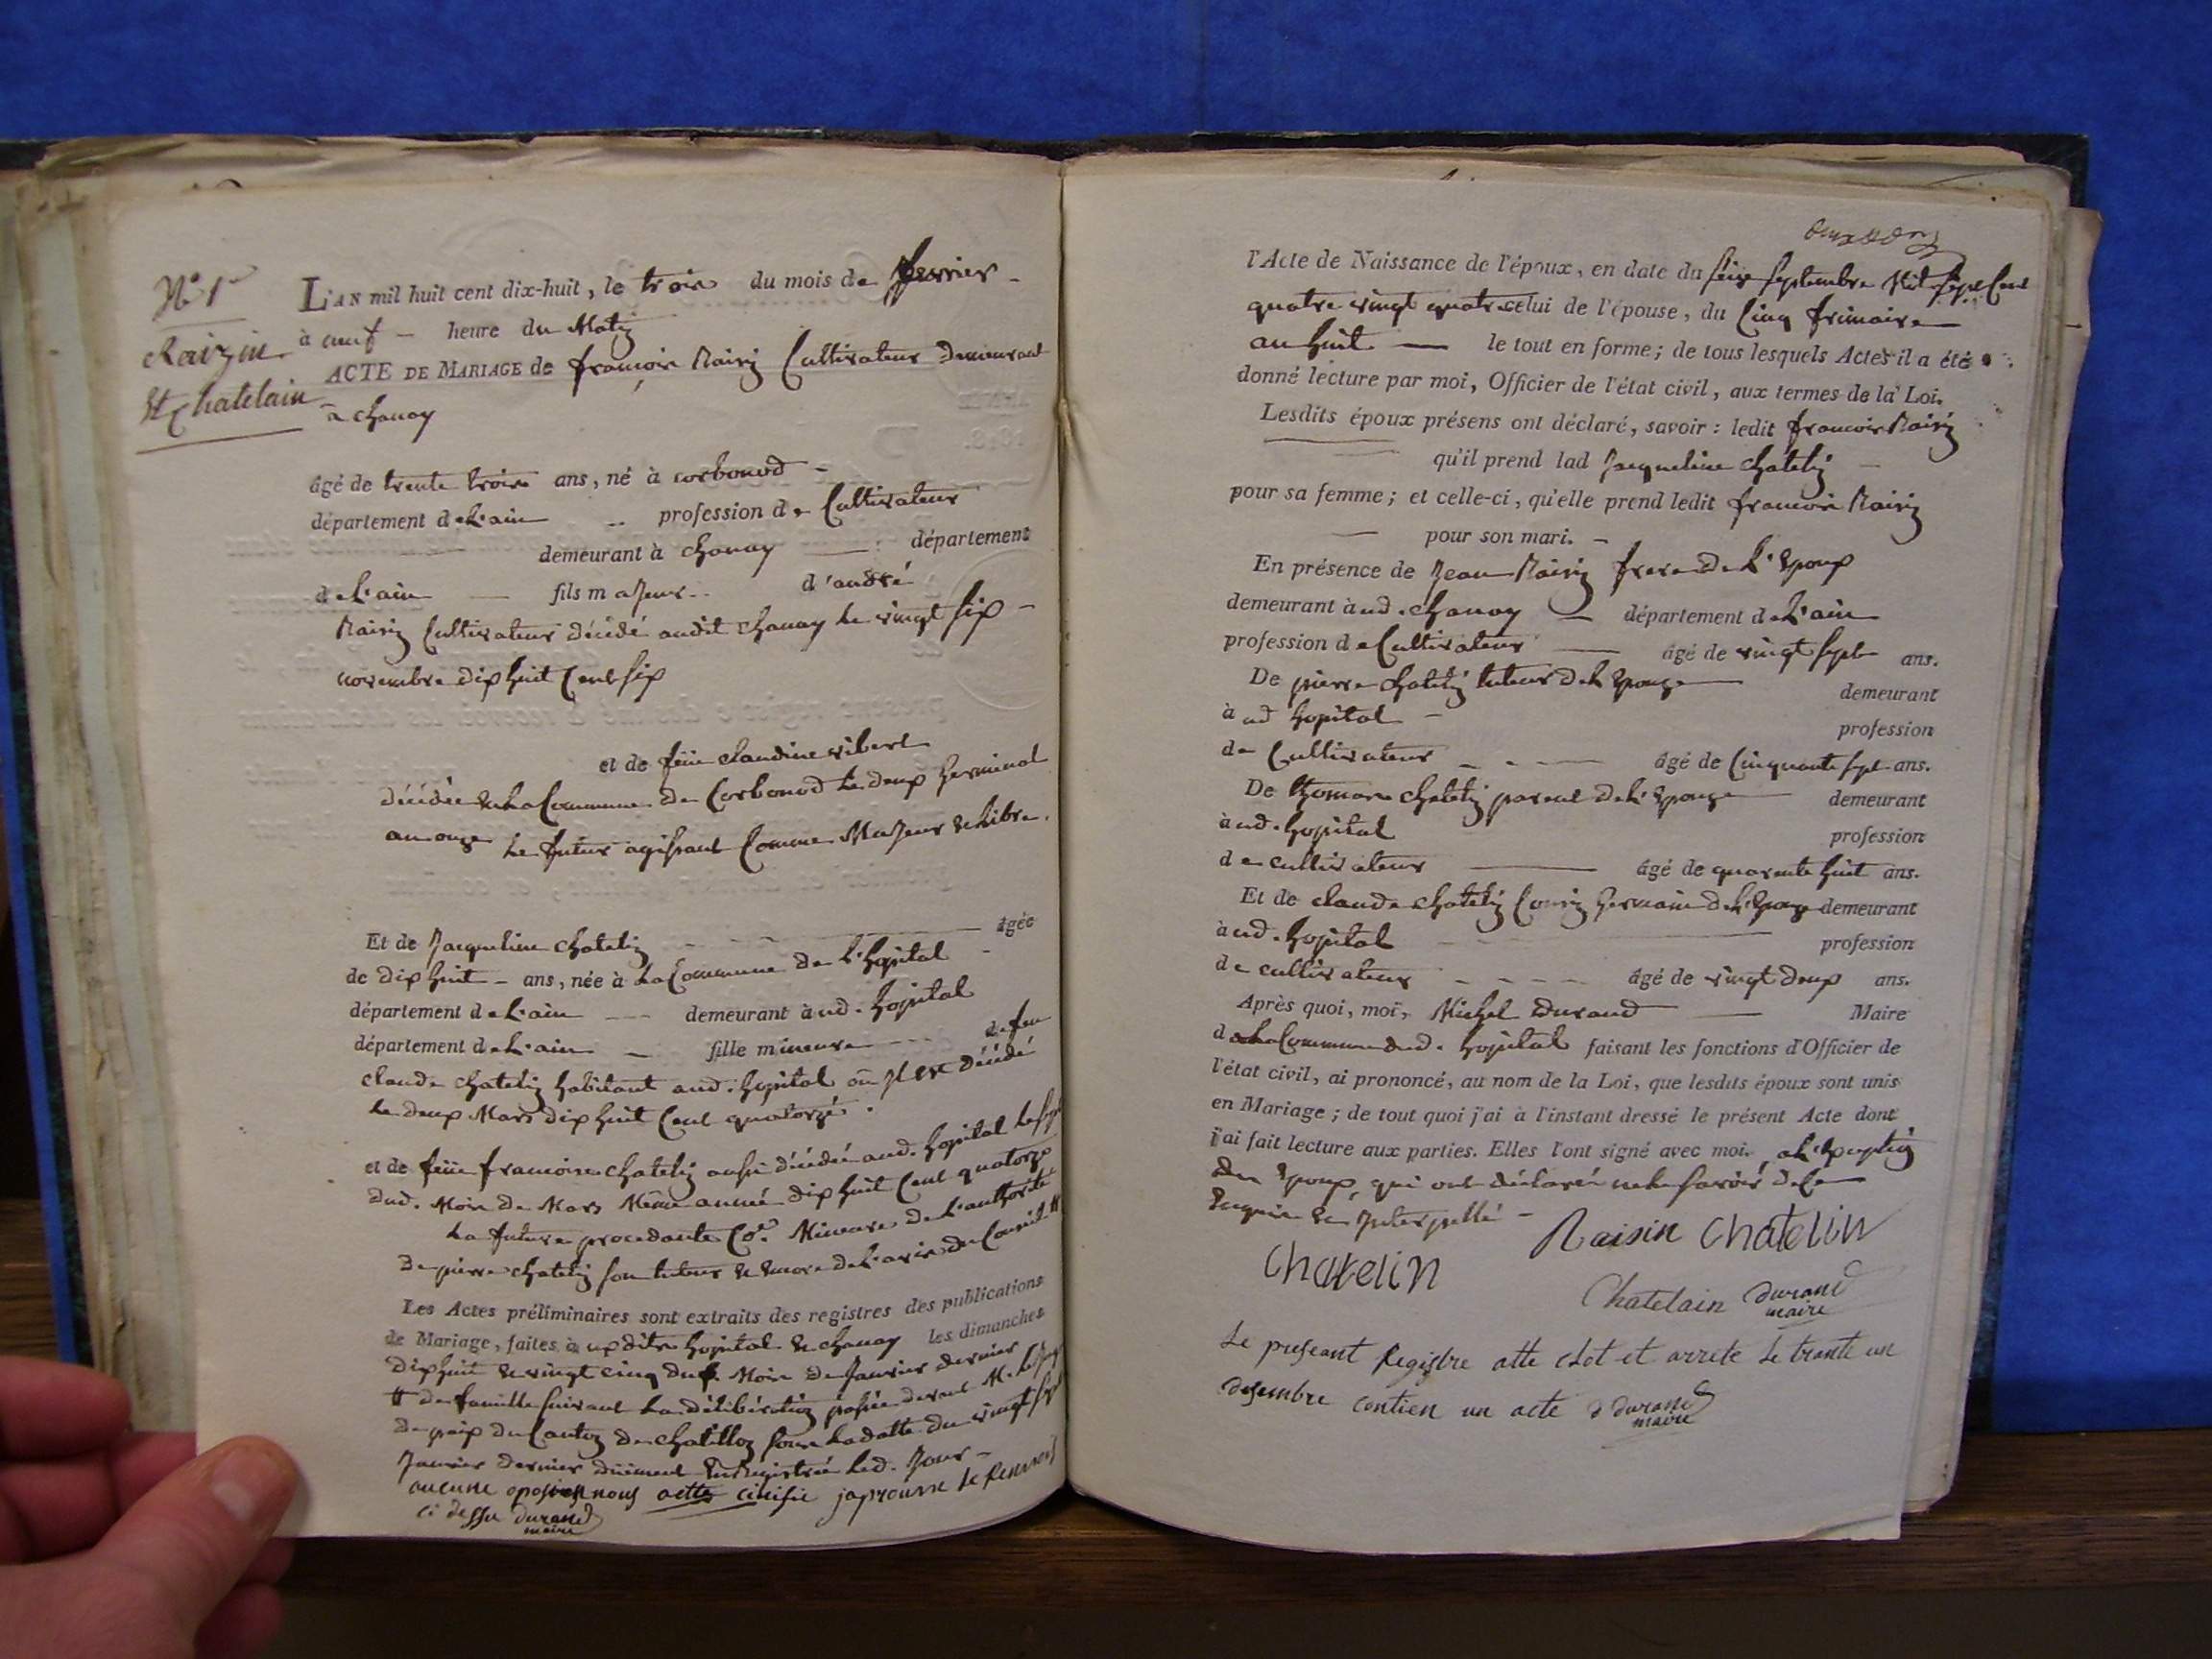 N.º 1er
Raizin
Et Chatelain
L'AN mil huit cent dix-huit, le trois du mois de fevrier
à neuf heure du Matin
ACTE DE MARIAGE de françois Raisin Cultivateur Demeurant
a chanay
âgé de trente trois ans, né à corbonod
département de L'ain profession de Cultivateur
demeurant à chanay département
de L'ain fils majeur d'andré
Raisin Cultivateur décédé audit chanay le vingt six
novembre dix huit Cent six
et de feüe claudine vibert
décédée en la Commune de Corbonod le deux Germinal
an onze le futur agissant Comme Majeur & Libre.
Et de Jacqueline chatelin âgée
de dix huit ans, née à La Commune de L'hopital
département de L'ain demeurant à ud. hopital
département de L'ain fille mineure de feu
claude chatelin habitant aud. hopital où il est décédé
le deux Mars dix huit Cent quatorze.
et de feüe francoise chatelin aussi décédée aud. hopital le sept
dud. Mois de Mars Même année dix huit Cent quatorze
La future procedante Co.e Mineure de L'authorité
de pierre chatelin son tuteur & encore de L'avis du Conseil #
Les Actes préliminaires sont extraits des registres des publications
de Mariage, faites à up dits hopital & chanay les dimanches
dix huit & vingt cinq du Mois de Janvier dernier
# de famille suivant La délibération passée devant M. le Juge
de paix du Canton de chatillon sous La datte du vingt sept
Janvier dernier düement Enregistrée led. Jour
aucune oposion nous actte cinifie japrouve le Renvoi
ci dessu durand
maire
l'Acte de Naissance de l'époux, en date du seize septembre Mil sept Cent
quatre vingt quatre celui de l'épouse, du Cinq frimaire
an huit le tout en forme; de tous lesquels Actes il a été
donné lecture par moi, Officier de l'état civil, aux termes de la Loi.
Lesdits époux présens ont déclaré, savoir: ledit francois Raisin
qu'il prend lad Jacqueline chatelin
pour sa femme; et celle-ci, qu'elle prend ledit francois Raisin
pour son mari.
En présence de Jean Raisin frere de L'Epoux
demeurant à ud. chanay département de L'ain
profession de Cultivateur âgé de vingt sept ans.
De pierre chatelin tuteur de L'Epouse demeurant
à ud hopital profession
de Cultivateur âgé de Cinquante sept ans.
De thomas chatelin parent de L'Epouse demeurant
à ud. hopital profession
de cultivateur âgé de quarente huit ans.
Et de claude chatelin Cousin Germain de L'Epouse demeurant
à ud. hopital profession
de cultivateur âgé de vingt deux ans.
Après quoi, moi, Michel Durand Maire
de La Commune dud. hopital faisant les fonctions d'Officier de
l'état civil, ai prononcé, au nom de la Loi, que lesdits époux sont unis
en Mariage; de tout quoi j'ai à l'instant dressé le présent Acte dont
j'ai fait lecture aux parties. Elles l'ont signé avec moi. a L'Exeption
des Epoux, qui ont déclaré ne le savoir de Ce
Enquis & Interpellé
Raisin Chatelin
Chatelin
Chatelain durand
maire
Le preseant Registre atte clot et arrete Le trante un
desembre contien un acte durand
maire